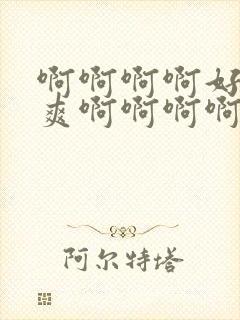 啊啊啊啊好
爽啊啊啊啊
阿尔特塔